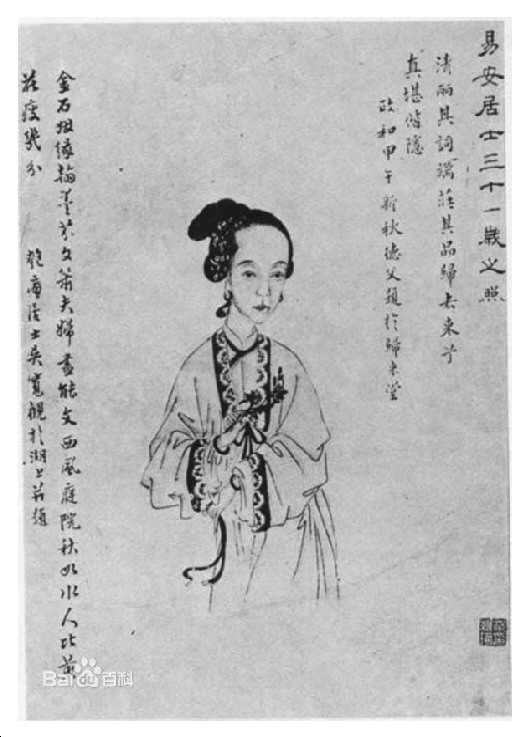 易安居士三十一歲之照
清丽其詞端莊其品歸去來兮
真堪偕隱
政和甲午新秋德父題於歸來堂
金石姻緣翰墨芬文簫夫婦盡能文西風庭院秋如水人比黃
花瘦幾分 匏庵居士吳寬觀於湖上並題
Bai du 百科